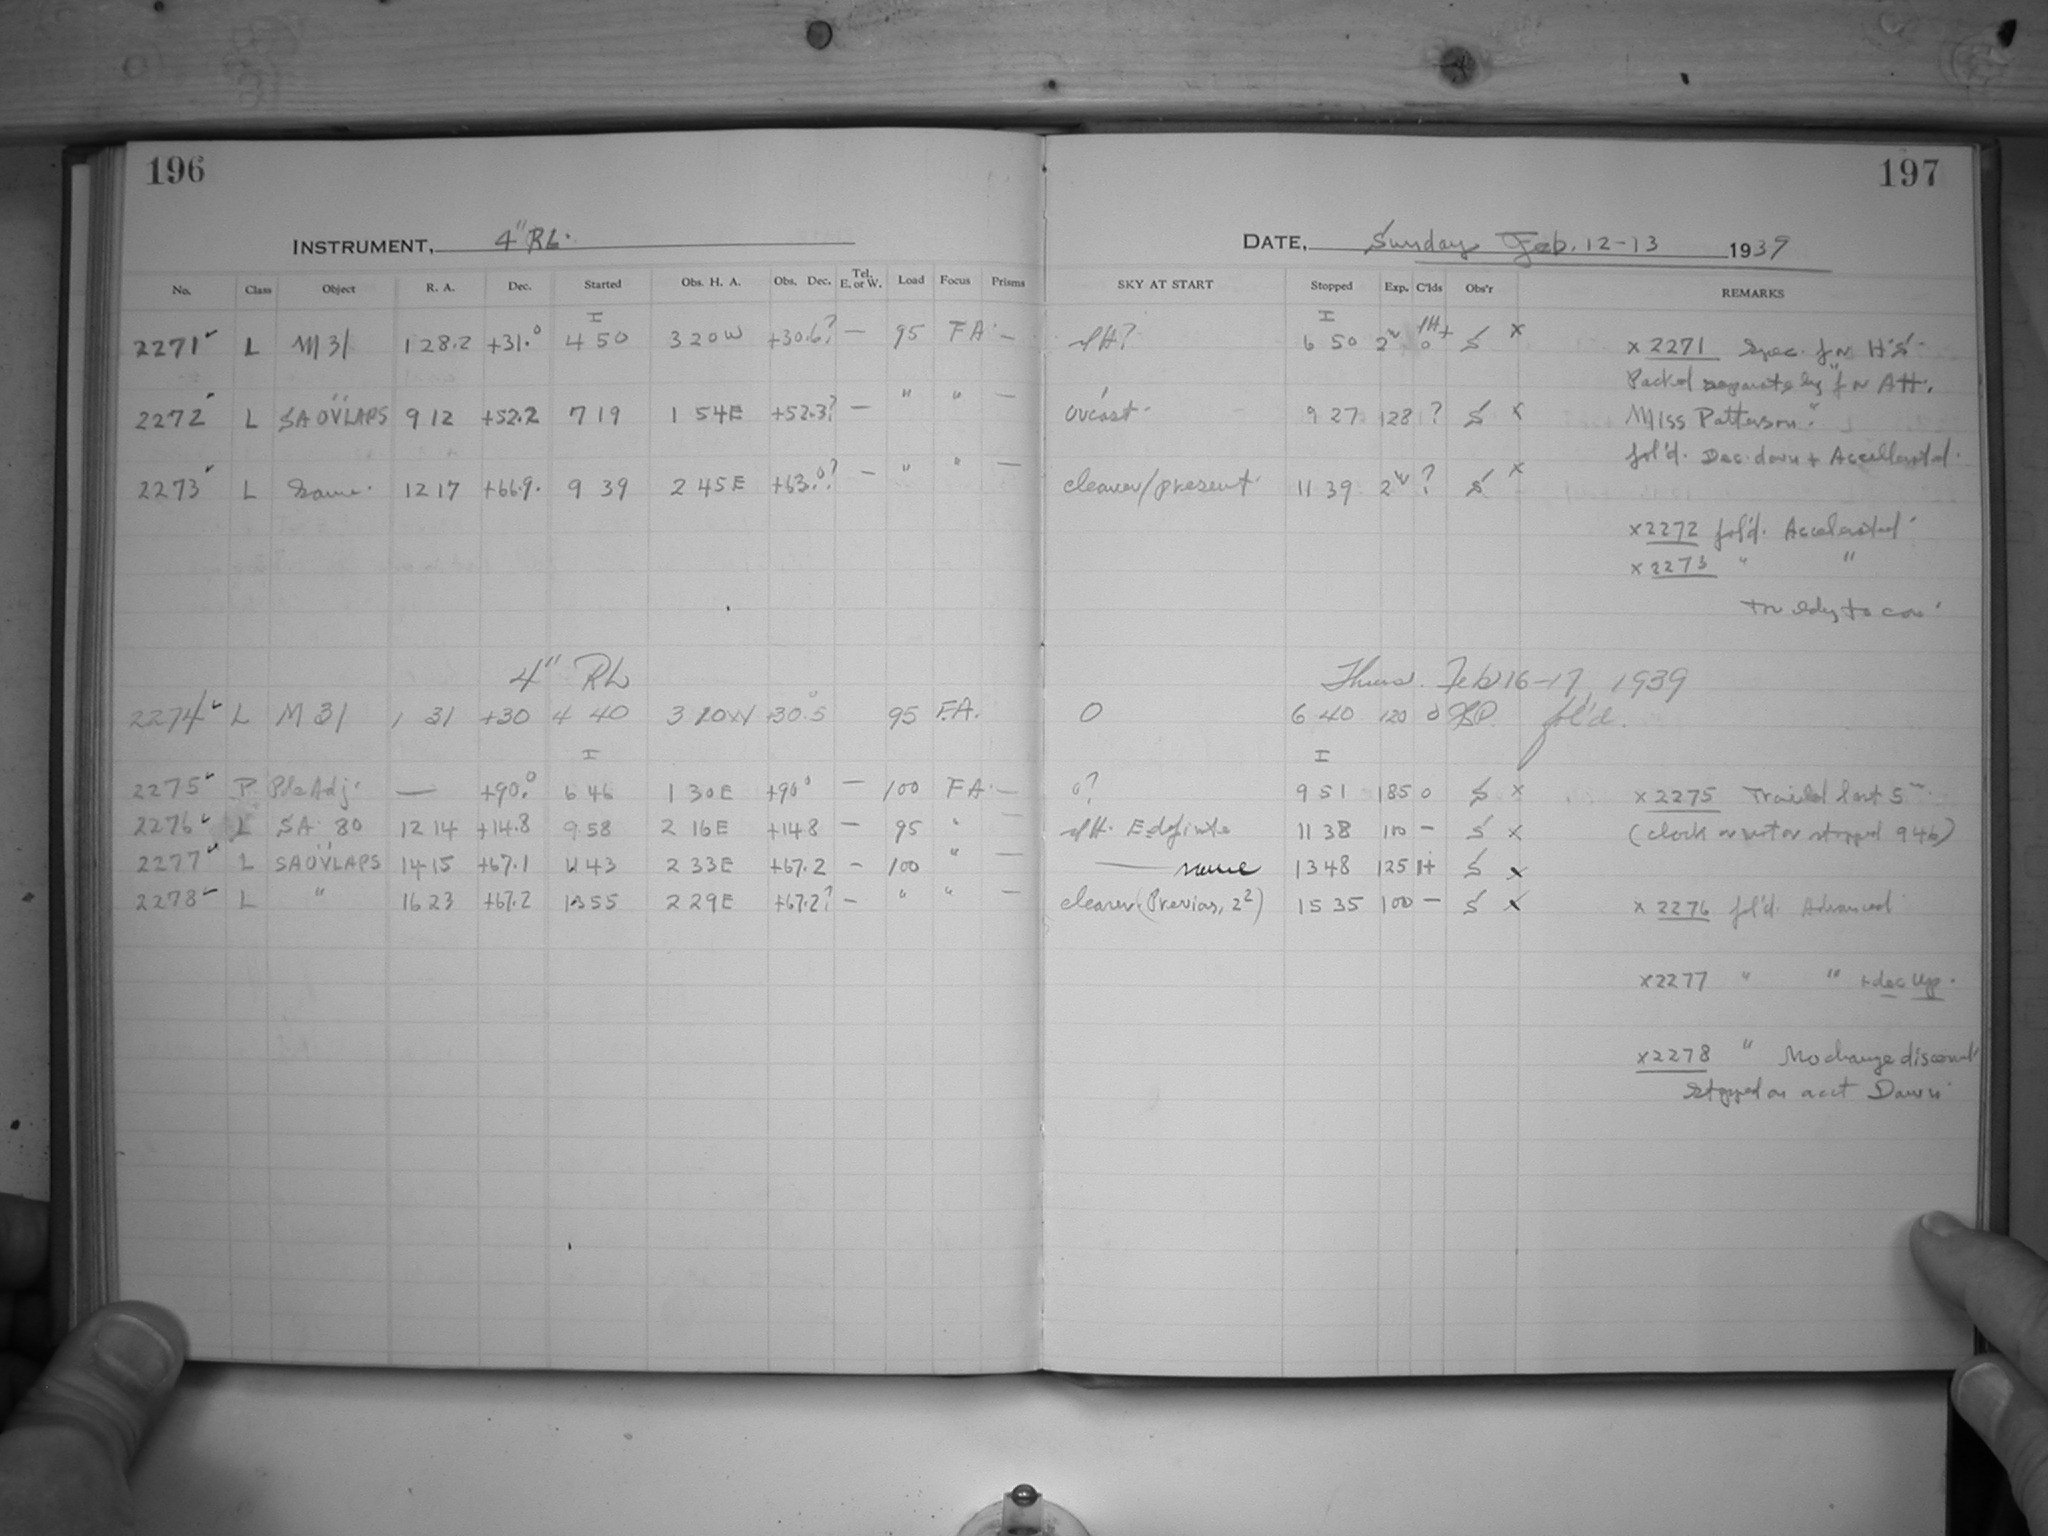 196
197
INSTRUMENT, 4" RL.
DATE, Sunday Feb. 12-13 1939
No. Class Object R. A. Dec. Started Obs. H. A. Obs. Dec. Tel. E. or W. Load Focus Prisms SKY AT START Stopped Exp. C'lds Obs'r REMARKS
I I
2271 L M31 1 28.2 +31.° 4 50 3 20 W +30.6? — 95 FA. — 6 50 S x x 2271 Spec. for H'S'
Packed separately for AH.
2272 L SA OVLAPS 9 12 +52.2 7 19 1 54E +52.3? — " " — ovcast 9 27 128 ? S x Miss Patterson.
fol'd. Dec. down + Accellerated.
2273 L Same. 12 17 +66.9. 9 39 2 45E +63.°? — " " — clearer/present 11 39 ? S x
x 2272 fol'd. Accelerated
x 2273 " "
4" RL Thurs. Feb 16-17, 1939
2274 L M 31 1 31 +30 4 40 3 10W +30.5 95 F.A. 0 6 40 120 0 fol'd.
I I
2275 P. Pole Adj. — +90.° 6 46 1 30E +90° — 100 FA. — 0? 9 51 185 0 S x x 2275 Trailed last 5m
2276 L SA 80 12 14 +14.8 9 58 2 16E +14.8 — 95 " 11 38 100 — S x (clock or motor stopped 9 46)
2277 L SA OVLAPS 14 15 +67.1 11 43 2 33E +67.2 — 100 " — same 13 48 125 1+ S x
2278 L " 16 23 +67.2 13 55 2 29E +67.2? — " " — clearer (Previous, 2²) 15 35 100 — S x x 2276 fol'd. Advanced
x 2277 " " + dec up.
x 2278 " No change discernt
stopped on acct Dawn